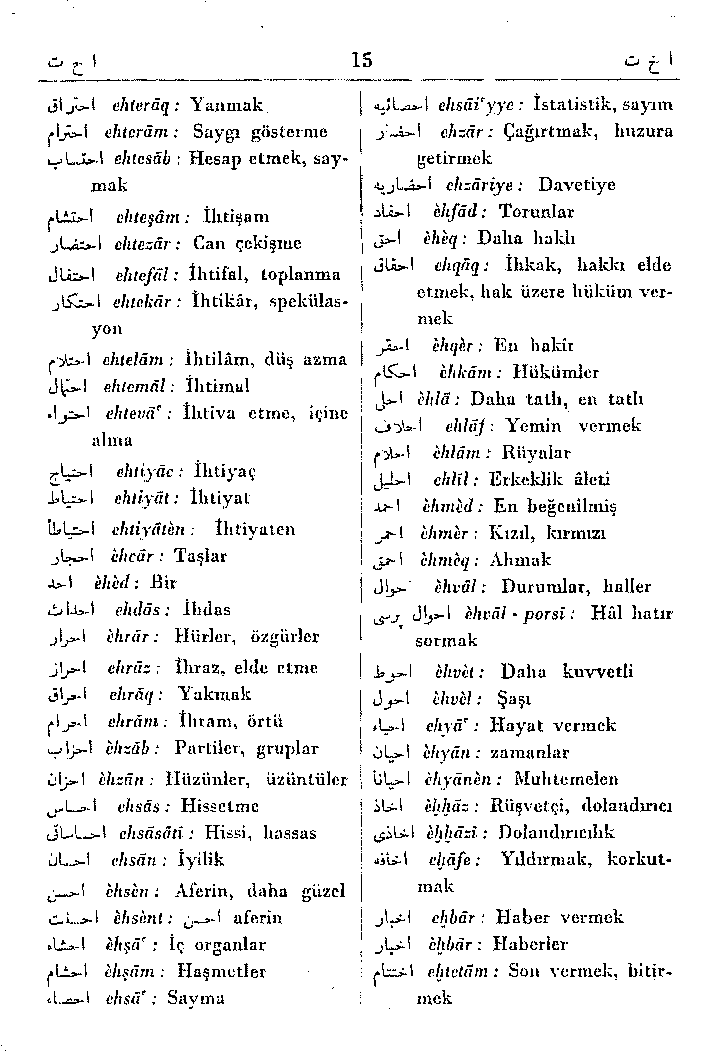 ا ح ت 15 ا خ ت
احتراق ehterāq : Yanmak
احترام ehterām : Saygı gösterme
احتساب ehtesāb : Hesap etmek, say-
mak
احتشام ehteşām : İhtişam
احتضار ehtezār : Can çekişme
احتفال ehtefāl : İhtifal, toplanma
احتكار ehtekār : İhtikâr, spekülas-
yon
احتلام ehtelām : İhtilâm, düş azma
احتمال ehtemāl : İhtimal
احتواء ehtevāʿ : İhtiva etme, içine
alma
احتياج ehtiyāc : İhtiyaç
احتياط ehtiyāt : İhtiyat
احتياطاً ehtiyātèn : İhtiyaten
احجار èhcār : Taşlar
احد èhèd : Bir
احداث ehdās : İhdas
احرار èhrār : Hürler, özgürler
احراز ehrāz : İhraz, elde etme
احراق ehrāq : Yakmak
احرام ehrām : İhram, örtü
احزاب èhzāb : Partiler, gruplar
احزان èhzān : Hüzünler, üzüntüler
احساس ehsās : Hissetme
احساساتى ehsāsātī : Hissi, hassas
احسان ehsān : İyilik
احسن èhsèn : Aferin, daha güzel
احسنت èhsènt : احسن aferin
احشاء èhşāʿ : İç organlar
احشام èhşām : Haşmetler
احصاء ehsāʿ : Sayma
احصائيه ehsāiʿyye : İstatistik, sayım
احضار ehzār : Çağırtmak, huzura
getirmek
احضاريه ehzāriye : Davetiye
احفاد èhfād : Torunlar
احق èhèq : Daha haklı
احقاق ehqāq : İhkak, hakkı elde
etmek, hak üzere hüküm ver-
mek
احقر èhqèr : En hakîr
احكام èhkām : Hükümler
احلى èhlā : Daha tatlı, en tatlı
احلاف ehlāf : Yemin vermek
احلام èhlām : Rüyalar
احليل ehlīl : Erkeklik âleti
احمد èhmèd : En beğenilmiş
احمر èhmèr : Kızıl, kırmızı
احمق èhmèq : Ahmak
احوال èhvāl : Durumlar, haller
احوال پرسى èhvāl - porsī : Hâl hatır
sormak
احوط èhvèt : Daha kuvvetli
احول èhvèl : Şaşı
احياء ehyāʿ : Hayat vermek
احيان èhyān : zamanlar
احياناً èhyānèn : Muhtemelen
اخاذ èḫḫāz : Rüşvetçi, dolandırıcı
اخاذى èḫḫāzī : Dolandırıcılık
اخافه eḫāfe : Yıldırmak, korkut-
mak
اخبار eḫbār : Haber vermek
اخبار èḫbār : Haberler
اختتام eḫtetām : Son vermek, bitir-
mek